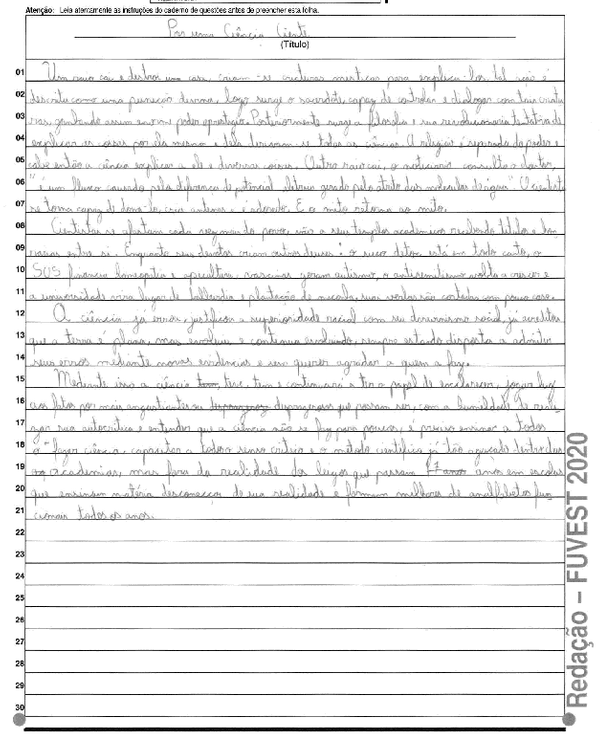 Atenção: Leia atentamente as instruções do caderno de questões antes de preencher esta folha.
Por uma Ciência Ciente
(Título)
01 Um raio cai e destrói uma casa, criam-se criaturas místicas para explicá-los, tal raio é
02 descrito como uma punição divina, logo surge o sacerdote capaz de controlar e dialogar com tais criatu
03 ras, ganhando assim enorme poder Posteriormente surge a filosofia e sua revolucionária tentativa de
04 explicar as coisas por ela mesma e dela derivaram-se todas as ciências. A religião é separada do poder e
05 cabe então a ciência explicar a ele e diversas coisas. Outro raio cai, o noticiário consulta o doutor,
06 "é um fluxo causado pela diferença de potencial elétrico gerado pelo atrito das moléculas de água". O cientista
07 se torna capaz de domá-lo, cria antenas e é adorado. E o mito retorna ao mito.
08 Cientistas se afastam cada vez mais do povo, vão a seus templos acadêmicos recebendo títulos e hon
09 rarias entre si. Enquanto isso criam outros deuses: o suco detox está em todo canto, o
10 SUS financia homeopatia e apicultura, vacinas geram autismo, o antissemitismo volta a crescer e
11 a universidade vira lugar de balbúrdia e plantação de maconha, suas verbas são cortadas com pouco caso.
12 A ciência já errou, justificou a superioridade racial com seu darwinismo social, já acreditou
13 que a terra é plana, mas evoluiu e continua evoluindo, sempre estando disposta a admitir
14 seus erros mediante novas evidências e sem querer agradar a quem a faz.
15 Mediante isso a ciência teve, tem e continuará a ter o papel de esclarecer, jogar luz
16 aos fatos por mais angustiantes ou desagradáveis que possam ser, com a humildade de reali-
17 zar sua autocrítica e entender que a ciência não se faz para poucos, é preciso ensinar a todos
18 o "fazer ciência", capacitar a todos o senso crítico e o método científico já tão aguçado dentro das
19 academias, mas fora da realidade dos leigos que passam 17 anos anos em escolas
20 que ensinam matéria desconexas de sua realidade e formam milhares de analfabetos fun-
21 cionais todos os anos.
22
23
24
25
26
27
28
29
30
Redação – FUVEST 2020